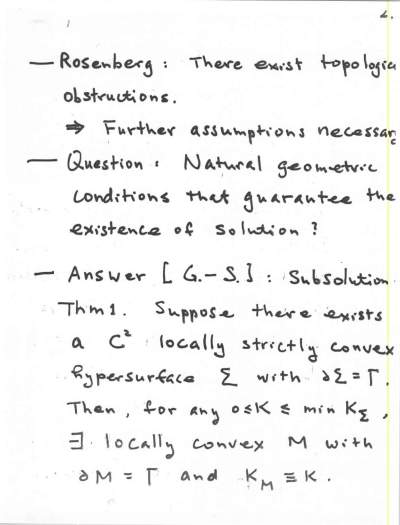 2.
— Rosenberg : There exist topologica
obstructions.
⇒ Further assumptions necessar
— Question : Natural geometric
conditions that guarantee the
existence of solution ?
— Answer [ G.- S. ] : Subsolution
Thm 1. Suppose there exists
a C² locally strictly convex
hypersurface Σ with ∂Σ = Γ.
Then, for any 0 ≤ K ≤ min K_Σ ,
∃ locally convex M with
∂M = Γ and K_M ≡ K .